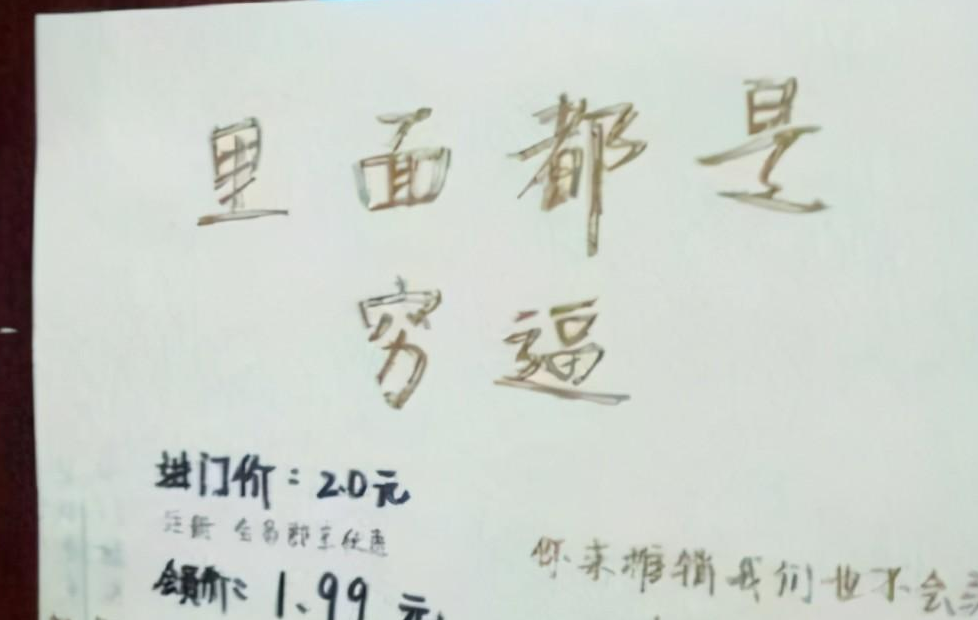 里面都是
穷逼
进门价：2.0元
注册 会员即享优惠
会员价：1.99元
你来推销我们也不会买